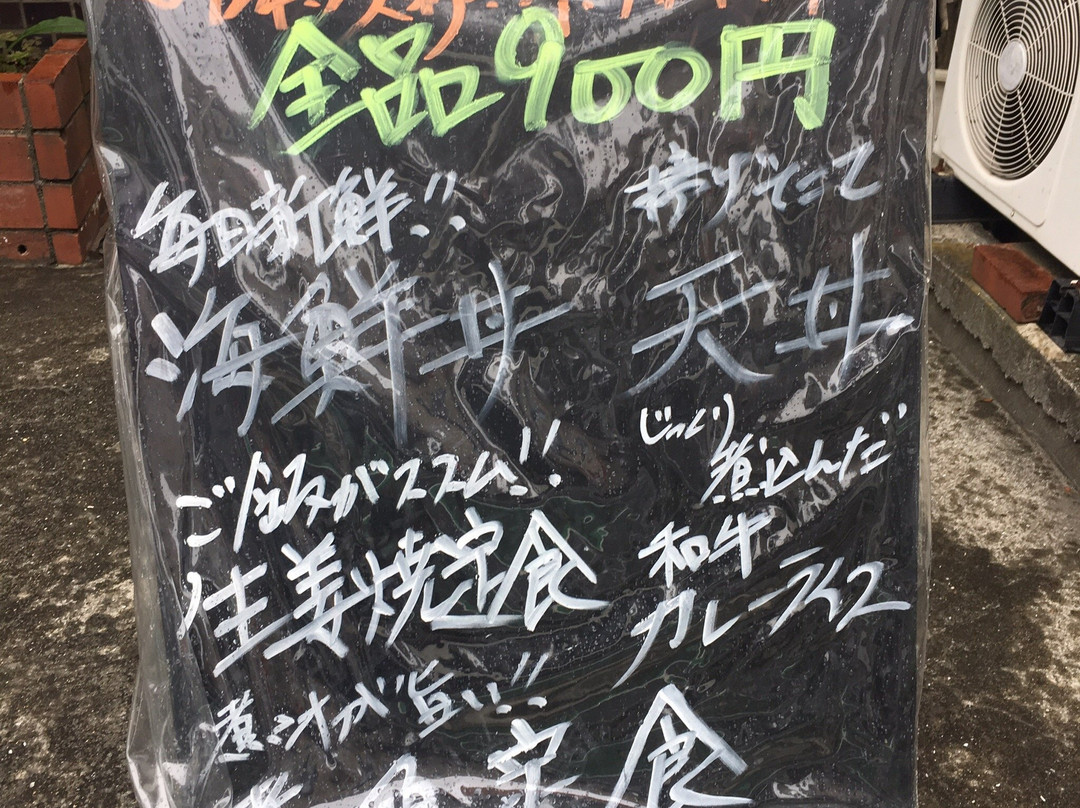 全品900円
毎日新鮮!!
海鮮丼
揚げたて
天丼
ご飯がススム!!
生姜焼定食
じっくり
煮込んだ
和牛
カレーライス
煮汁が旨い!!
定食